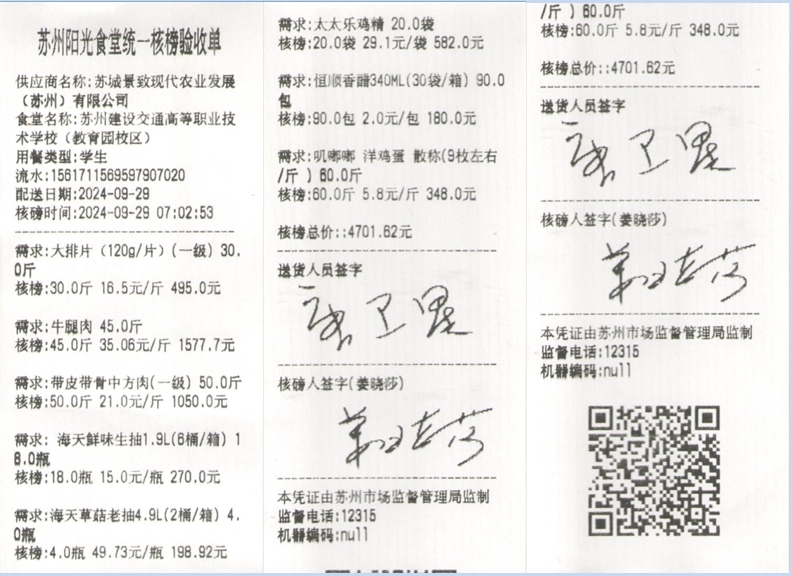 苏州阳光食堂统一核榜验收单
供应商名称:苏城景致现代农业发展
（苏州）有限公司
食堂名称:苏州建设交通高等职业技
术学校（教育园校区）
用餐类型:学生
流水:1561711569597907020
配送日期:2024-09-29
核磅时间:2024-09-29 07:02:53
需求:大排片（120g/片）(一级) 30.
0斤
核榜:30.0斤 16.5元/斤 495.0元
需求:牛腿肉 45.0斤
核榜:45.0斤 35.06元/斤 1577.7元
需求:带皮带骨中方肉(一级) 50.0斤
核榜:50.0斤 21.0元/斤 1050.0元
需求: 海天鲜味生抽1.9L(6桶/箱) 1
8.0瓶
核榜:18.0瓶 15.0元/瓶 270.0元
需求:海天草菇老抽4.9L(2桶/箱) 4.
0瓶
核榜:4.0瓶 49.73元/瓶 198.92元
需求:太太乐鸡精 20.0袋
核榜:20.0袋 29.1元/袋 582.0元
需求:恒顺香醋340ML(30袋/箱) 90.0
包
核榜:90.0包 2.0元/包 180.0元
需求:叽嘟嘟 洋鸡蛋 散称(9枚左右
/斤 ) 60.0斤
核榜:60.0斤 5.8元/斤 348.0元
核榜总价::4701.62元
送货人员签字
核磅人签字(姜晓莎)
本凭证由苏州市场监督管理局监制
监督电话:12315
机器编码:null
/斤 ) 60.0斤
核榜:60.0斤 5.8元/斤 348.0元
核榜总价::4701.62元
送货人员签字
核磅人签字(姜晓莎)
本凭证由苏州市场监督管理局监制
监督电话:12315
机器编码:null